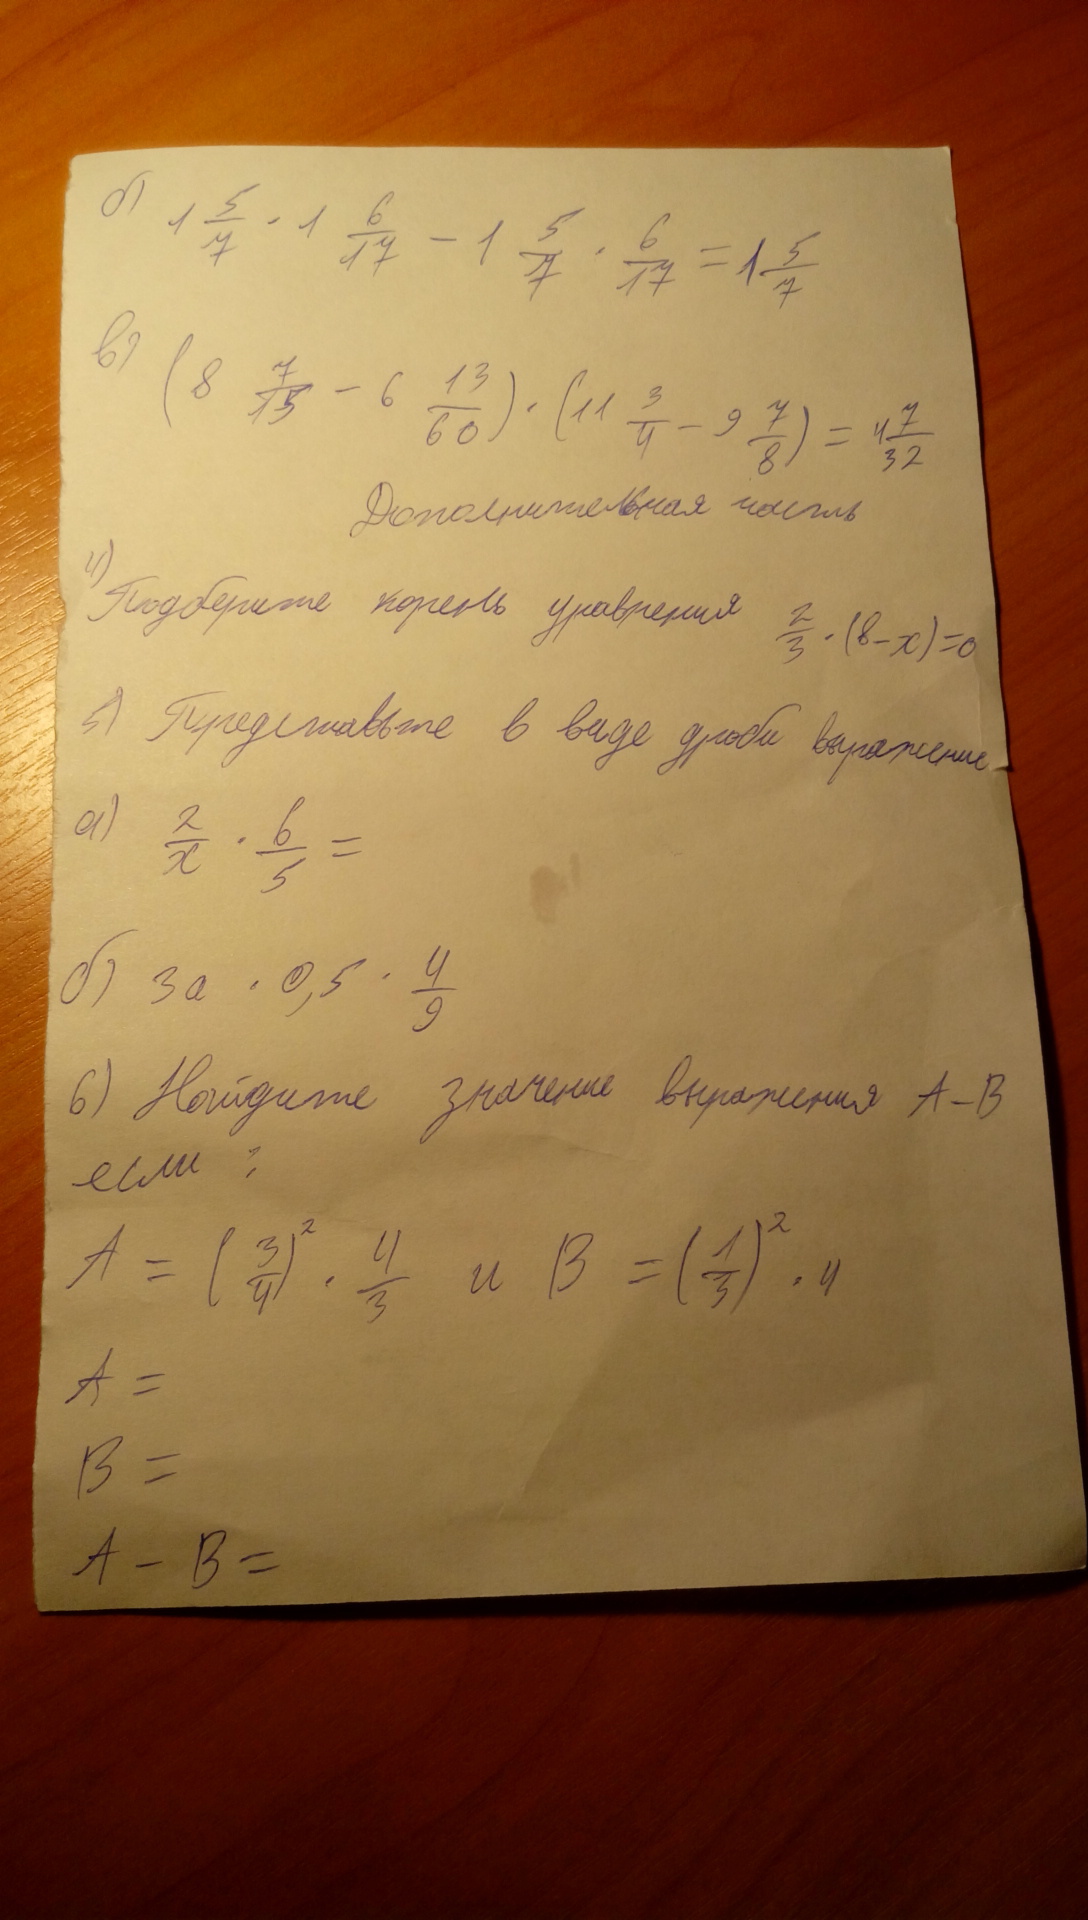 б) 1 5/7 · 1 6/17 - 1 5/7 · 6/17 = 1 5/7
в) (8 7/15 - 6 13/60) · (11 3/4 - 9 7/8) = 4 7/32
Дополнительная часть
4) Подберите корень уравнения 2/3 · (8-x)=0
5) Представьте в виде дроби выражение
а) 2/x · 6/5 =
б) 3a · 0,5 · 4/9
6) Найдите значение выражения A-B
если :
A = (3/4)² · 4/3 и B = (1/3)² · 4
A =
B =
A - B =